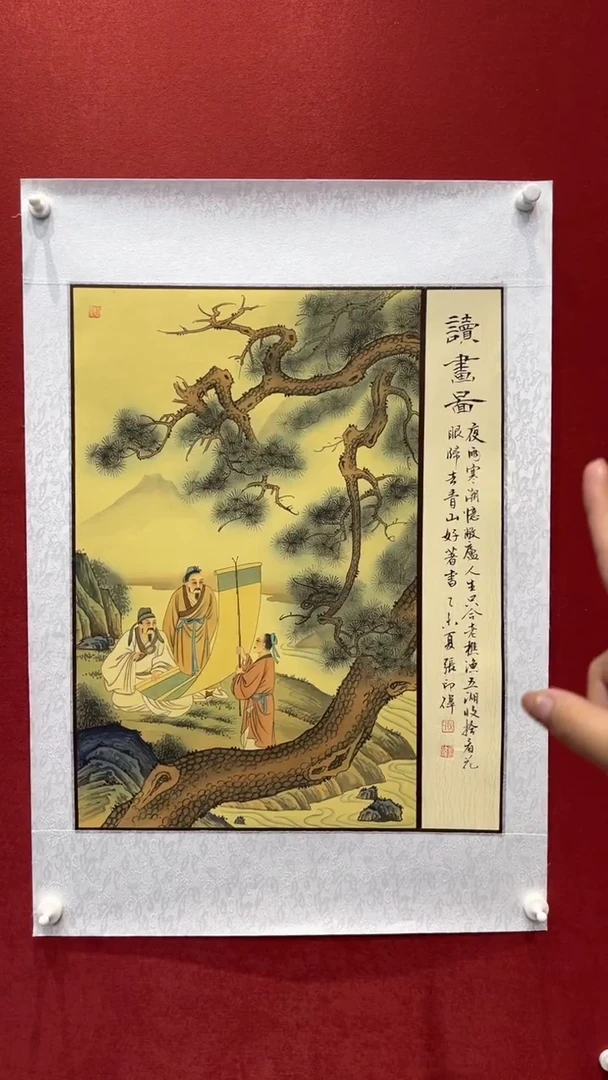 讀畫啚
夜雨寒潮憶敝廬人生只合老樵漁五湖收拾看花
眼歸去青山好著書乙未夏張印偉